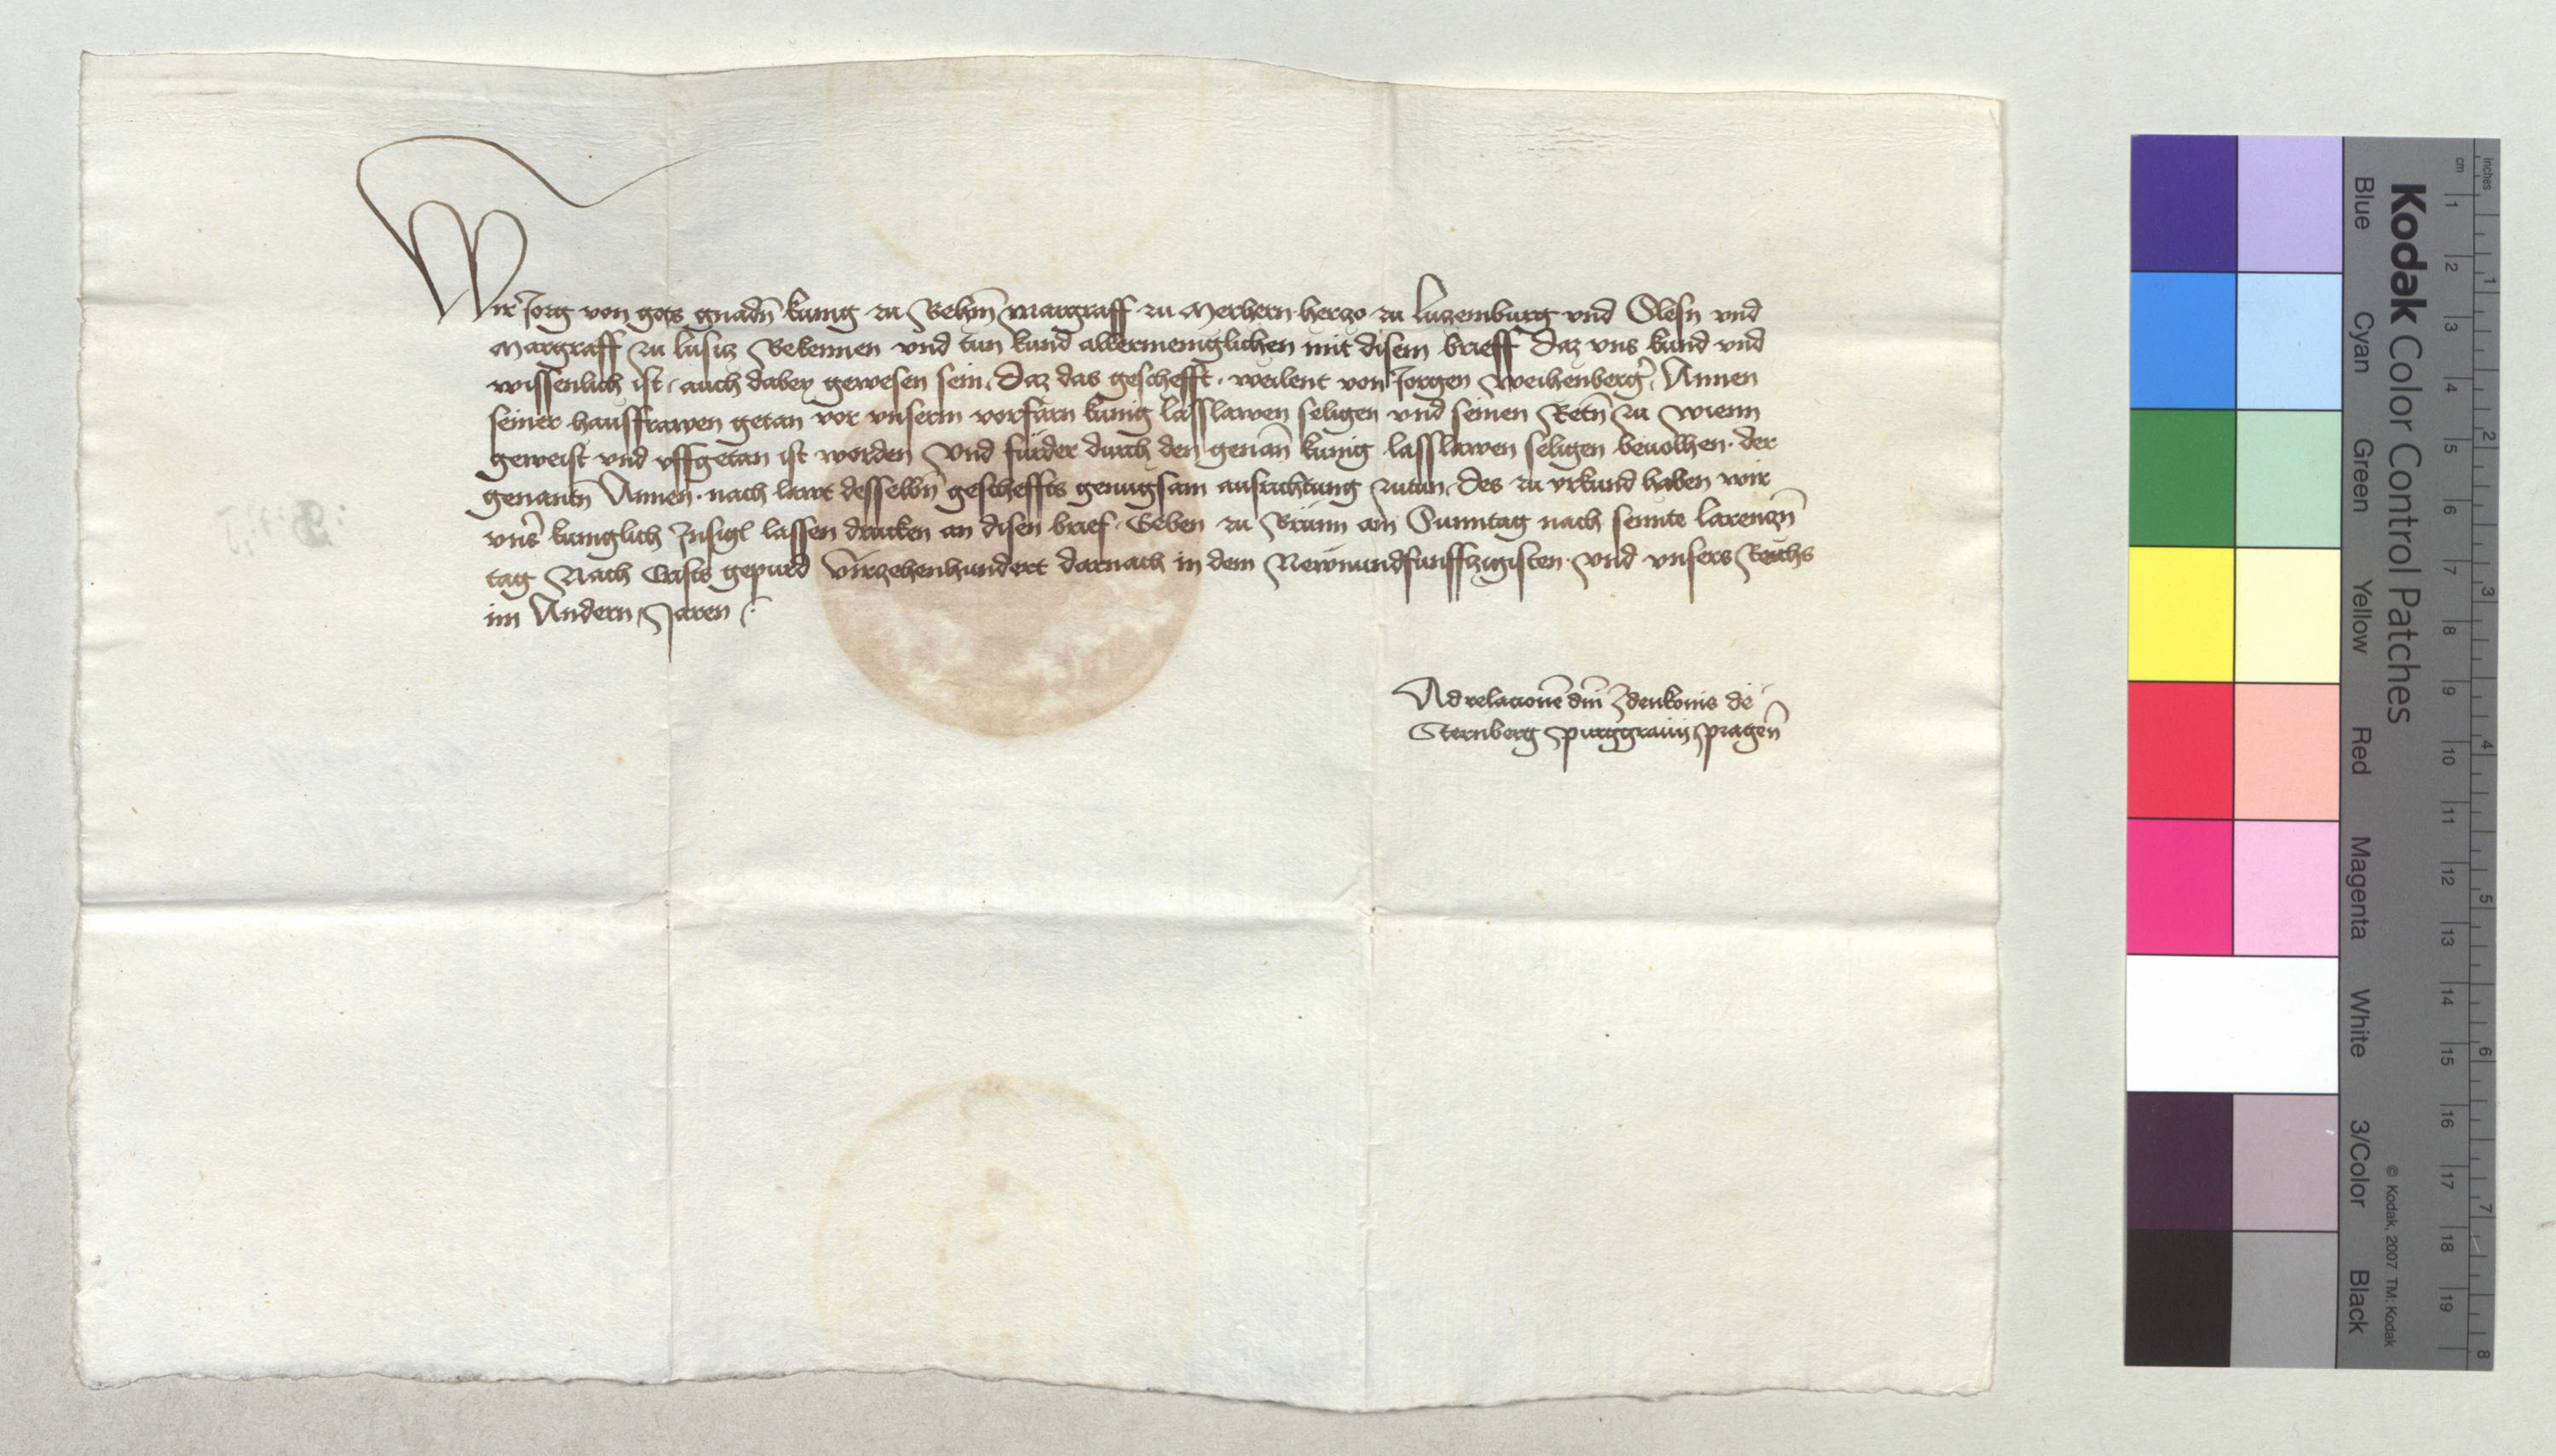 Wir Jorg von gots gnadn̄ kunig zu Behm̄ Margraff zu Merhern herzo zu Luzemburg vnd Slesn vnd
Margraff zu lusitz Bekennen vnd tun kund allermeniglichen mit disem brieff Daz vns kund vnd
wissenlich ist auch dabey gewesen sein. Daz das geschefft. weilent von Jorgen Weihenberg̉ Annen
seiner hausffrawen getan vor vnserm vorfarn kunig lasslawen seligen vnd seinen Retn̄ zu Wienn
geweist vnd vffgetan ist worden Vnd furder durch den genan̄ kunig lasslawen seligen beuolhen. der
genantn̄ Annen. nach lawt desselbn̄ gescheffts genugsam ausrichtung zutun. des zu vrkund haben wir
vnѕ̉ kuniglich Insigl lassen drucken an disen brief. Geben zu Brünn am Sunntag nach sennte larenczn̄
tag Nach Crists gepurd Virzehenhundert darnach in dem Newnundfunffzigisten. Vnd vnsers Reichs
im Andern Jaren
Ad relacionē dnī Zdenkonis de
Sternberg purggrauij pragen̄
Kodak Color Control Patches
Blue Cyan Green Yellow Red Magenta White 3/Color Black
© Kodak, 2007 TM: Kodak
cm 1 2 3 4 5 6 7 8 9 10 11 12 13 14 15 16 17 18 19
inches 1 2 3 4 5 6 7 8